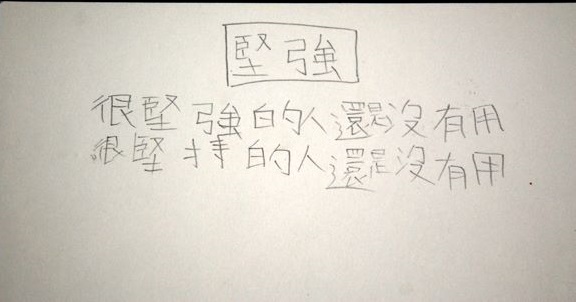 堅強
很堅強的人還是沒有用
很堅持的人還是沒有用